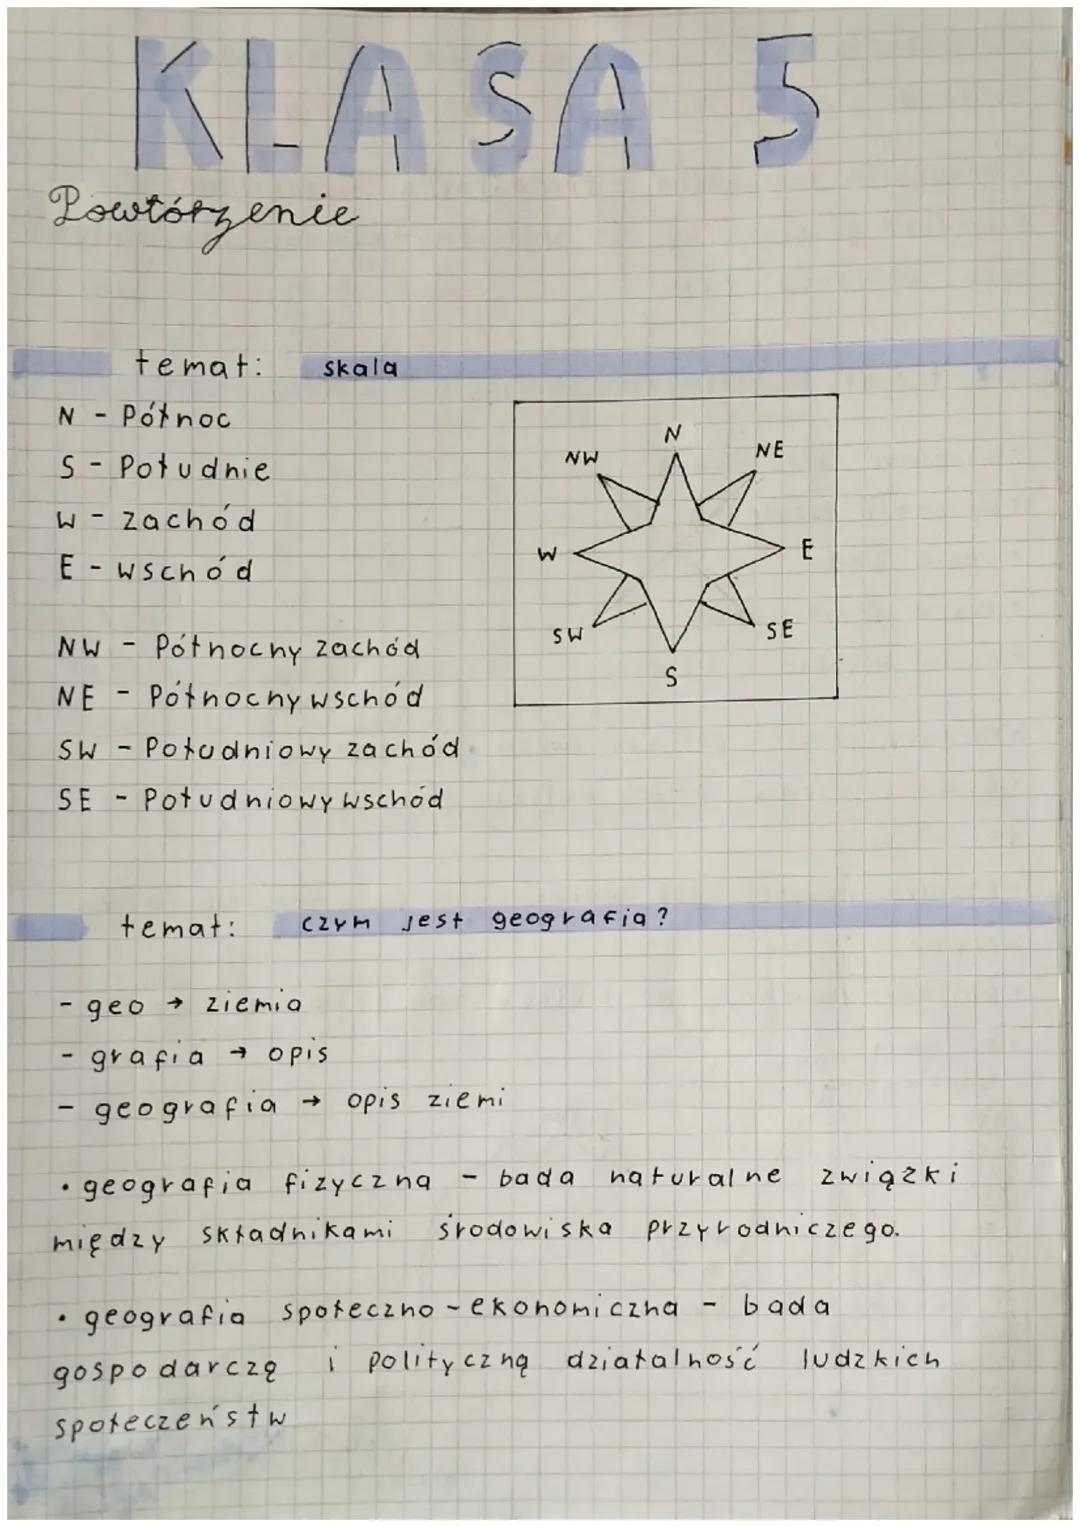 KLASA 5
Powtórzenie
temat: skala
N - Północ
S - Południe
W - zachód
E - wschód
NW - Północny zachód
NE - Północny wschód
SW - Południowy zachód
SE - Południowy wschód
N
NW
NE
W
E
SW
SE
S
temat: czym jest geografia?
- geo → ziemia
- grafia → opis
- geografia → opis ziemi
• geografia fizyczna - bada naturalne związki
między składnikami środowiska przyrodniczego.
• geografia społeczno - ekonomiczna - bada
gospodarczę i polityczną działalność ludzkich
społeczeństw